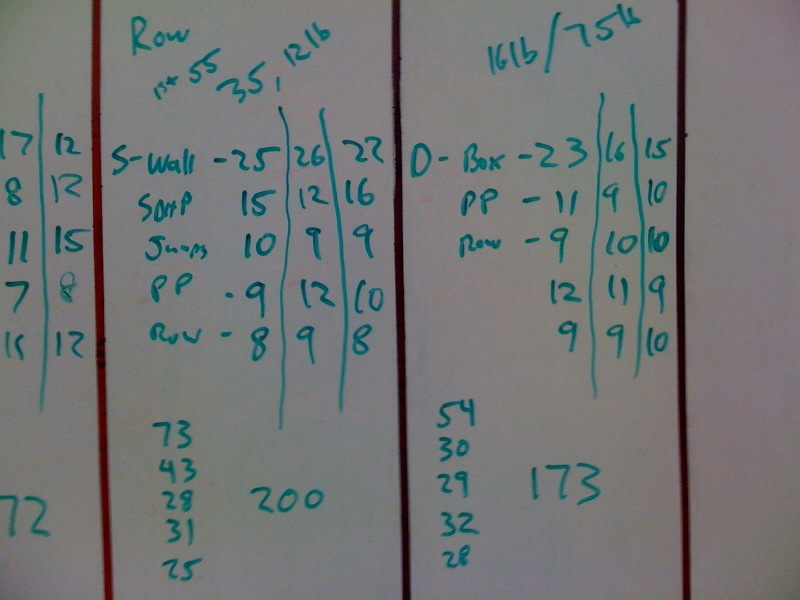 17 12
8 12
11 15
7 8
12
72
Row
55
35, 12lb
S-Wall - 25 26 22
SDHP 15 12 16
Jumps 10 9 9
PP - 9 12 10
Row - 8 9 8
73
43
28
31
25
200
16lb/75lb
D - Box - 23 16 15
PP - 11 9 10
Row - 9 10 10
12 11 9
9 9 10
54
30
29
32
28
173